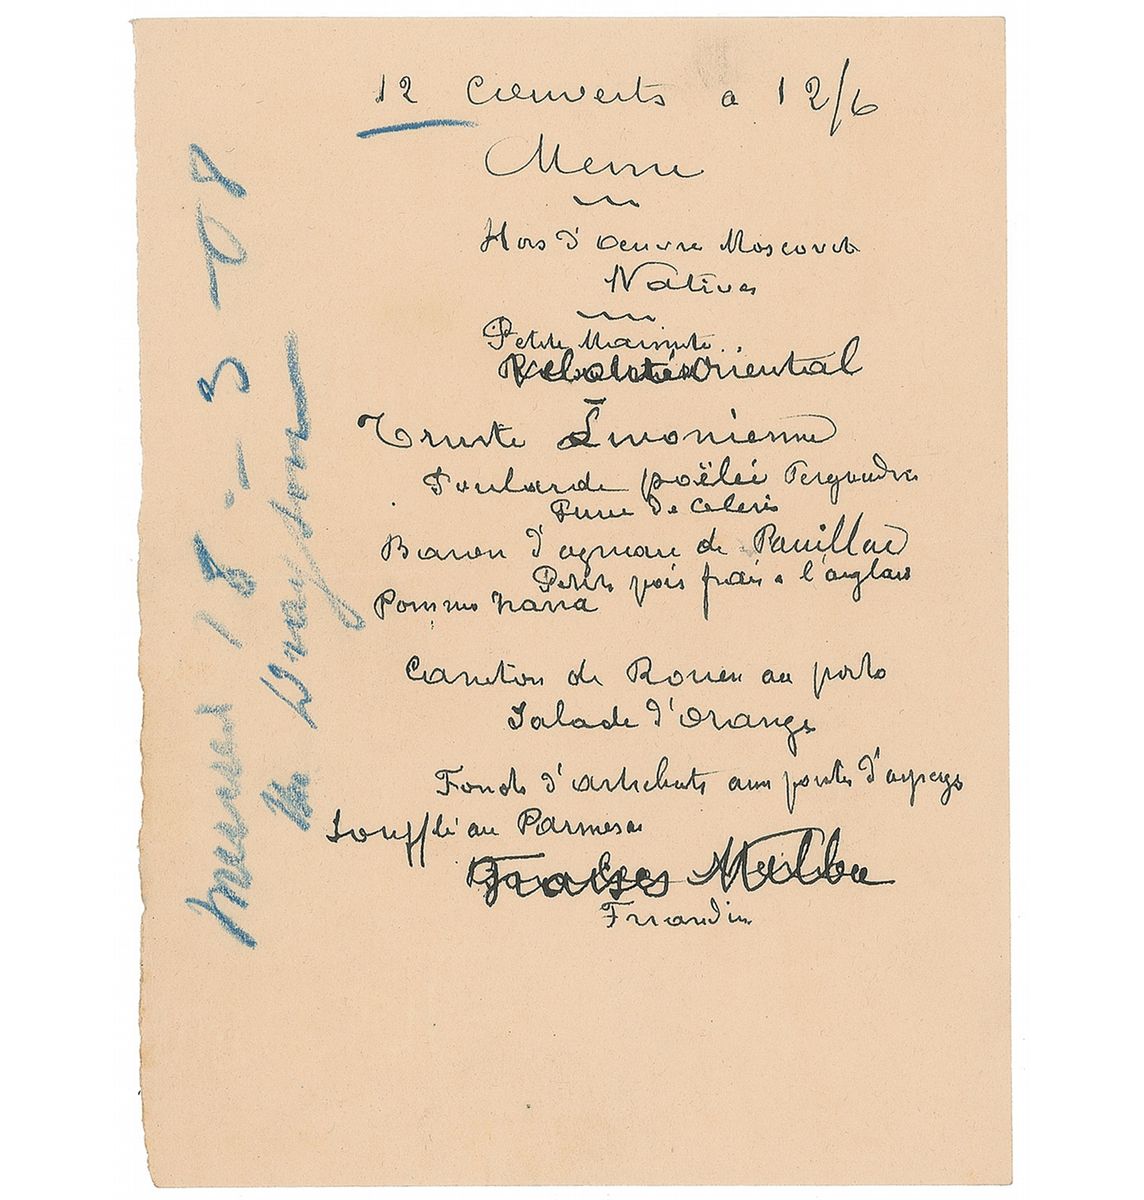 12 Couverts a 12/6
Menu
Hors d'oeuvre Moscovite
Natives
Petite Marmite
Velouté Oriental
Truite Livonienne
Poularde poëlée
Puree de Celeris
Baron d'agneau de Pauillac
Petits pois frais a l'anglaise
Pommes Nana
Caneton de Rouen au porto
Salade d'Orange
Fonds d'artichauts aux pointes d'asperges
Soufflé au Parmesan
Fraises Melba
Friandises
18-3-08